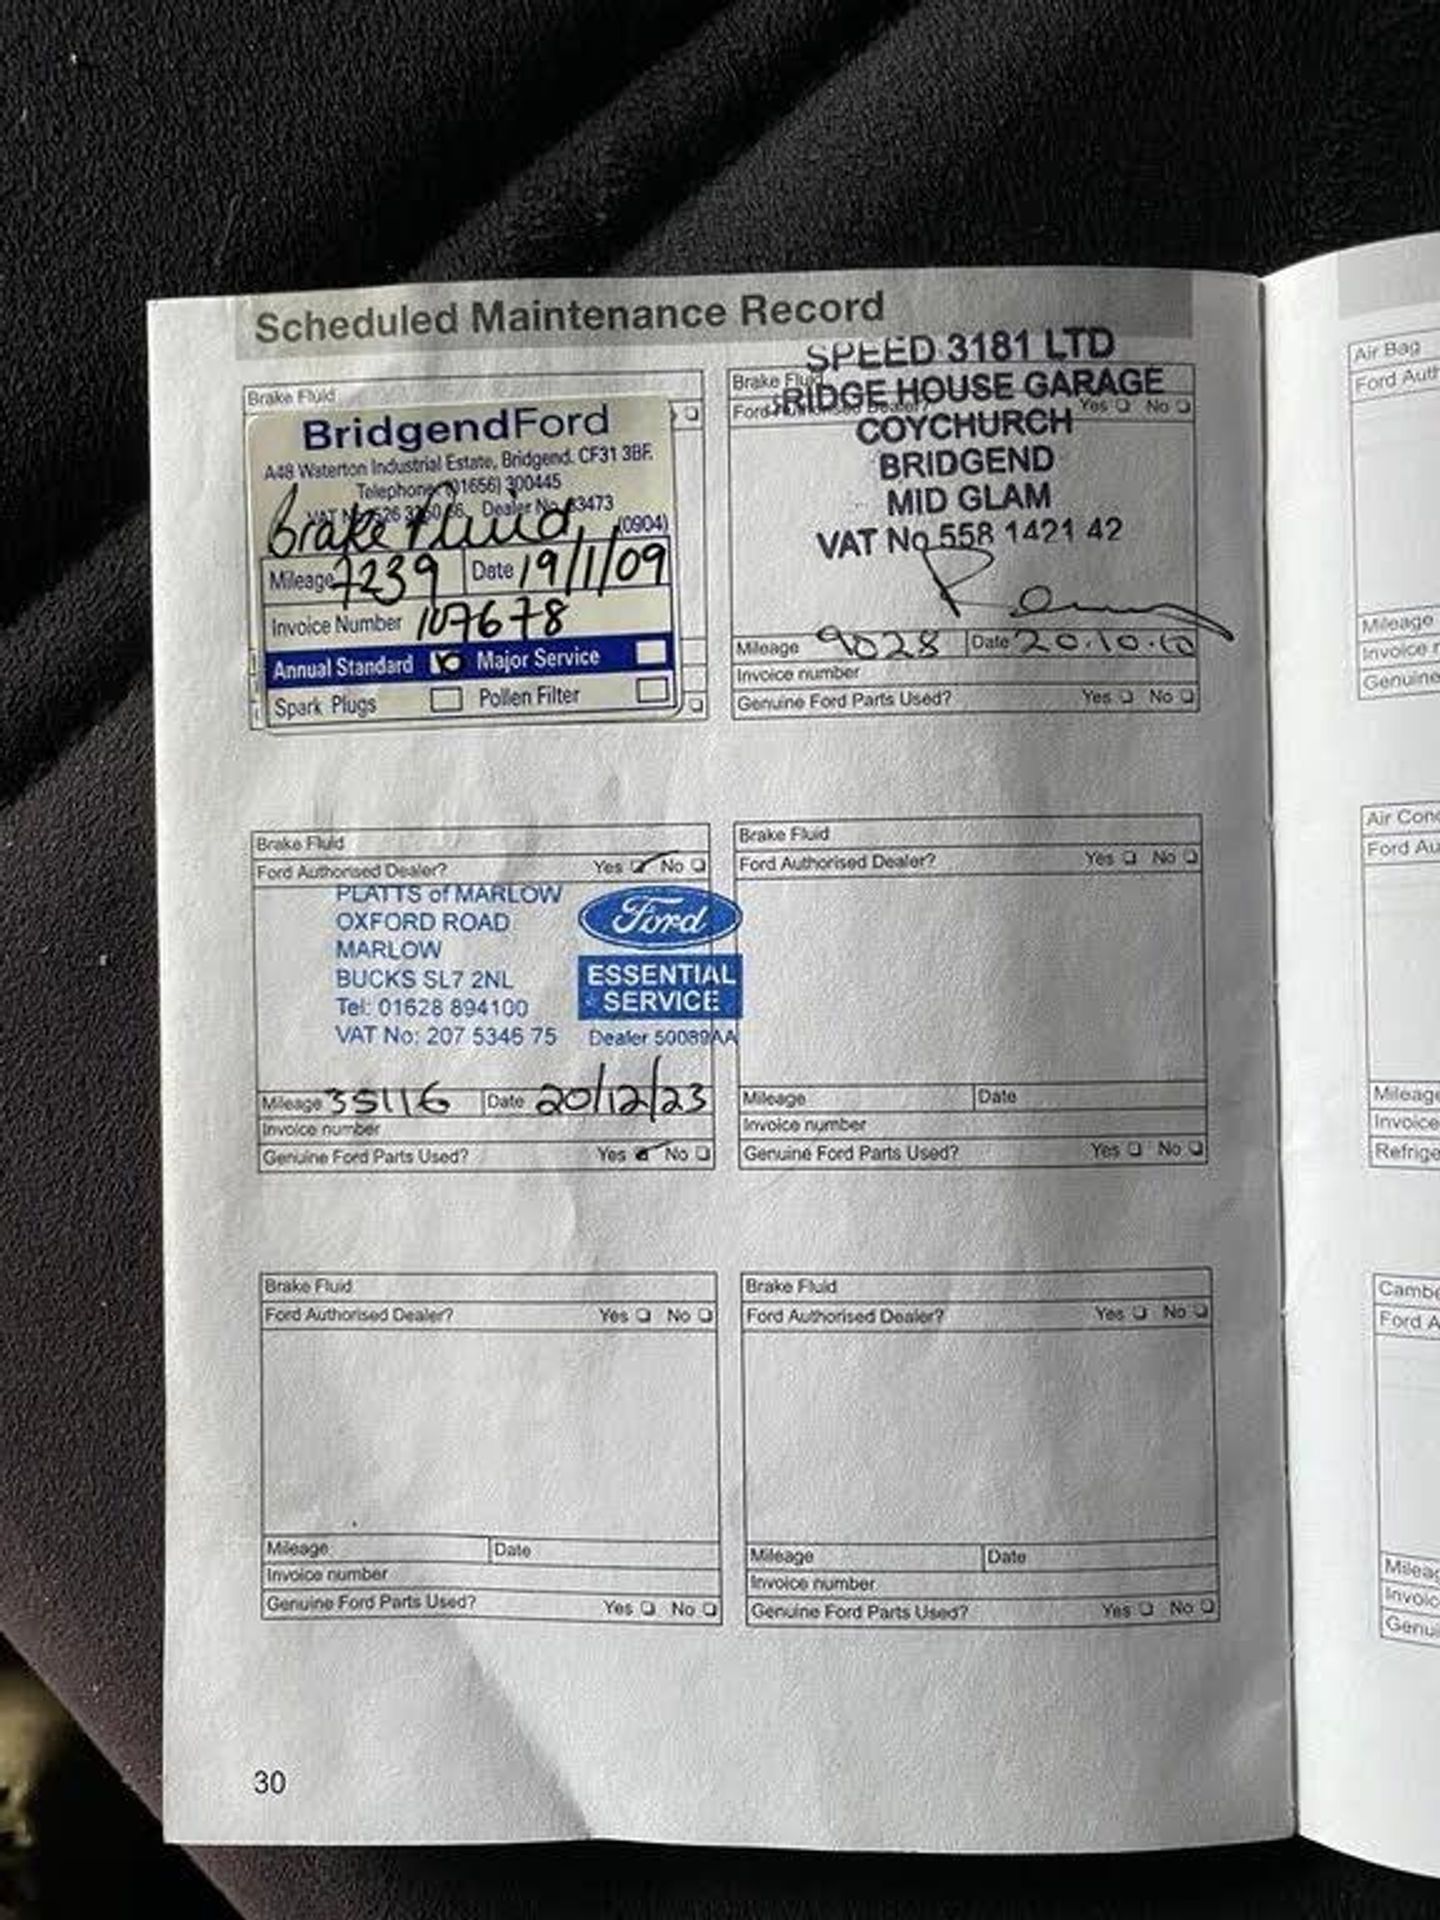 Scheduled Maintenance Record
Brake Fluid
BridgendFord
A48 Waterton Industrial Estate, Bridgend. CF31 3BF.
Telephone: (01656) 300445
VAT Dealer No. 63473
Brake Fluid (0904)
Mileage 7239 Date 19/1/09
Invoice Number 107678
Annual Standard Major Service
Spark Plugs Pollen Filter
SPEED 3181 LTD
Brake Fluid
RIDGE HOUSE GARAGE
Ford Authorised Dealer? Yes No
COYCHURCH
BRIDGEND
MID GLAM
VAT No 558 1421 42
Mileage 9028 Date 20.10.10
Invoice number
Genuine Ford Parts Used? Yes No
Brake Fluid
Ford Authorised Dealer? Yes No
PLATTS of MARLOW
OXFORD ROAD
MARLOW
BUCKS SL7 2NL
Tel: 01628 894100
VAT No: 207 5346 75
Ford
ESSENTIAL
SERVICE
Dealer 50089AA
Mileage 35116 Date 20/12/23
Invoice number
Genuine Ford Parts Used? Yes No
Brake Fluid
Ford Authorised Dealer? Yes No
Mileage Date
Invoice number
Genuine Ford Parts Used? Yes No
Brake Fluid
Ford Authorised Dealer? Yes No
Mileage Date
Invoice number
Genuine Ford Parts Used? Yes No
Brake Fluid
Ford Authorised Dealer? Yes No
Mileage Date
Invoice number
Genuine Ford Parts Used? Yes No
30
Air Bag
Ford Auth
Mileage
Invoice
Genuine
Air Cond
Ford Au
Mileage
Invoice
Refrige
Cambe
Ford A
Mileag
Invoic
Genui